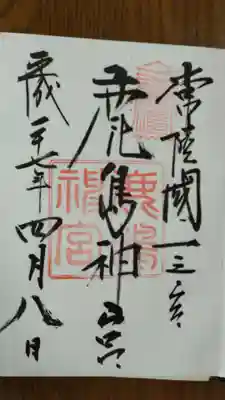 常陸國一之宮
鹿島神宮
鹿島
神宮
平成二十七年四月八日